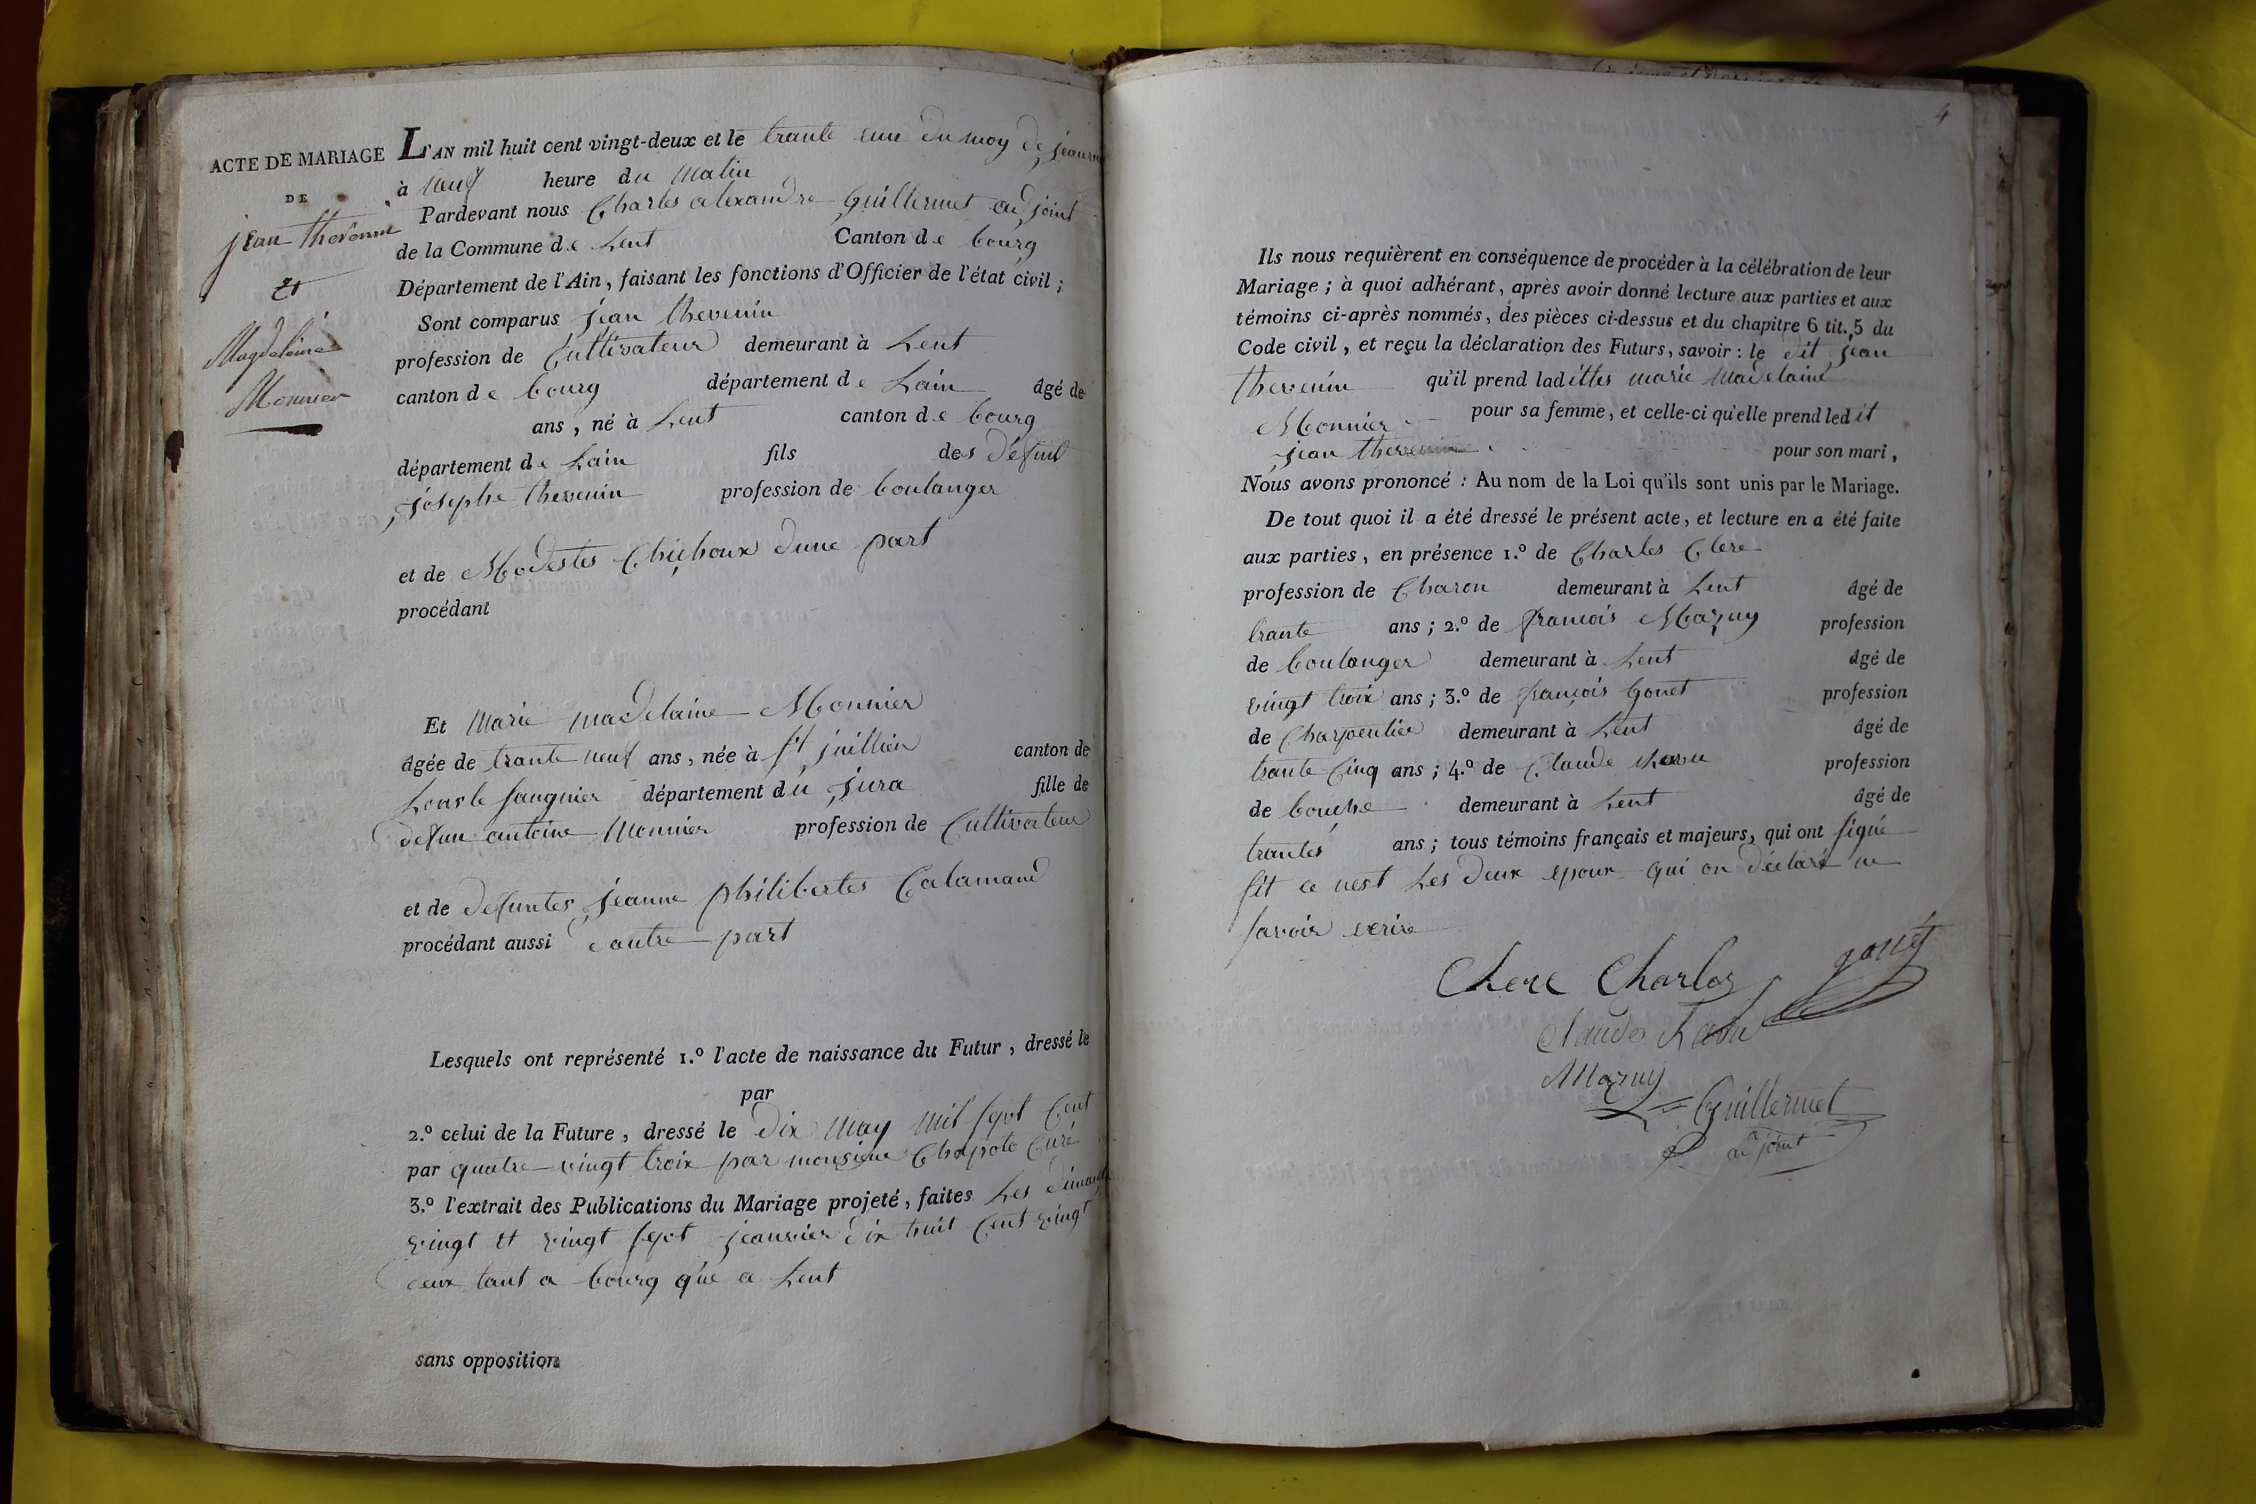 ACTE DE MARIAGE
DE
jean thevenin
Et
Magdelaine
Monnier
L'AN mil huit cent vingt-deux et le trante eune du moy de jeanv
à neuf heure du Matin
Pardevant nous Charles alexandre Guillermet adjoint
de la Commune de Lent Canton de bourg
Département de l'Ain, faisant les fonctions d'Officier de l'état civil;
Sont comparus jean thevenin
profession de Cultivateur demeurant à Lent
canton de bourg département de Lain âgé de
ans, né à Lent canton de bourg
département de Lain fils des défunt
josephe thevenin profession de boulanger
et de Modestes Chichoux dune part
procédant
Et Marie madelaine Monnier
âgée de trante neuf ans, née à st juillien canton de
Lonsle saugnier département du jura fille de
defun antoine Monnier profession de Cultivateur
et de defuntes jeanne philibertes Calamand
procédant aussi dautre part
Lesquels ont représenté 1.º l'acte de naissance du Futur, dressé le
par
2.º celui de la Future, dressé le dix May mil sept Cent
par quatre vingt troix par monsieur Chapoto Curé
3.º l'extrait des Publications du Mariage projeté, faites Les dimanche
vingt et vingt sept jeanvier dix huit Cent vingt
deux tant a bourg que a Lent
sans opposition
4
Ils nous requièrent en conséquence de procéder à la célébration de leur
Mariage; à quoi adhérant, après avoir donné lecture aux parties et aux
témoins ci-après nommés, des pièces ci-dessus et du chapitre 6 tit. 5 du
Code civil, et reçu la déclaration des Futurs, savoir: le dit jean
thevenin qu'il prend ladittes marie madelaine
Monnier pour sa femme, et celle-ci qu'elle prend ledit
jean thevenin pour son mari,
Nous avons prononcé: Au nom de la Loi qu'ils sont unis par le Mariage.
De tout quoi il a été dressé le présent acte, et lecture en a été faite
aux parties, en présence 1.º de Charles Clere
profession de Charon demeurant à Lent âgé de
trante ans; 2.º de françois Mazuy profession
de boulanger demeurant à Lent âgé de
vingt troix ans; 3.º de françois Gonet profession
de Charpentier demeurant à Lent âgé de
trante Cinq ans; 4.º de Claude profession
de bouche demeurant à Lent âgé de
trantes ans; tous témoins français et majeurs, qui ont signé
sit ce nest Les deux epoux qui on déclaré ne
savoir ecrire
Clere Charles gonet
Claude
Mazuy
Guillermet
adjoint